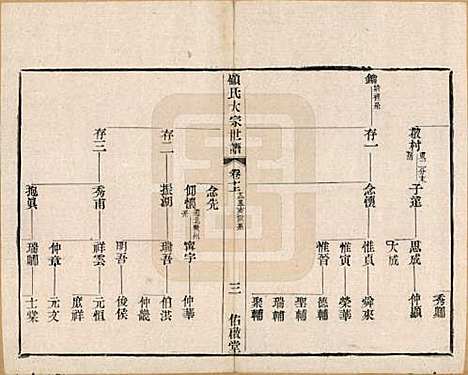 敬村
子蓮
思成
仲顯
秀關
大成
鑑
存一
念懷
惟貞
舜來
榮華
惟晉
德輔
聖輔
瑞輔
聚輔
顧氏大宗世譜
卷十三
三
佑啟堂
存二
振湖
瑞吾
伯洪
仲叢
念先
仰懷
寗宇
仲華
存三
秀甫
明吾
俊侯
祥雲
元恒
庶祥
抱眞
仲章
元文
瑞關
士榮